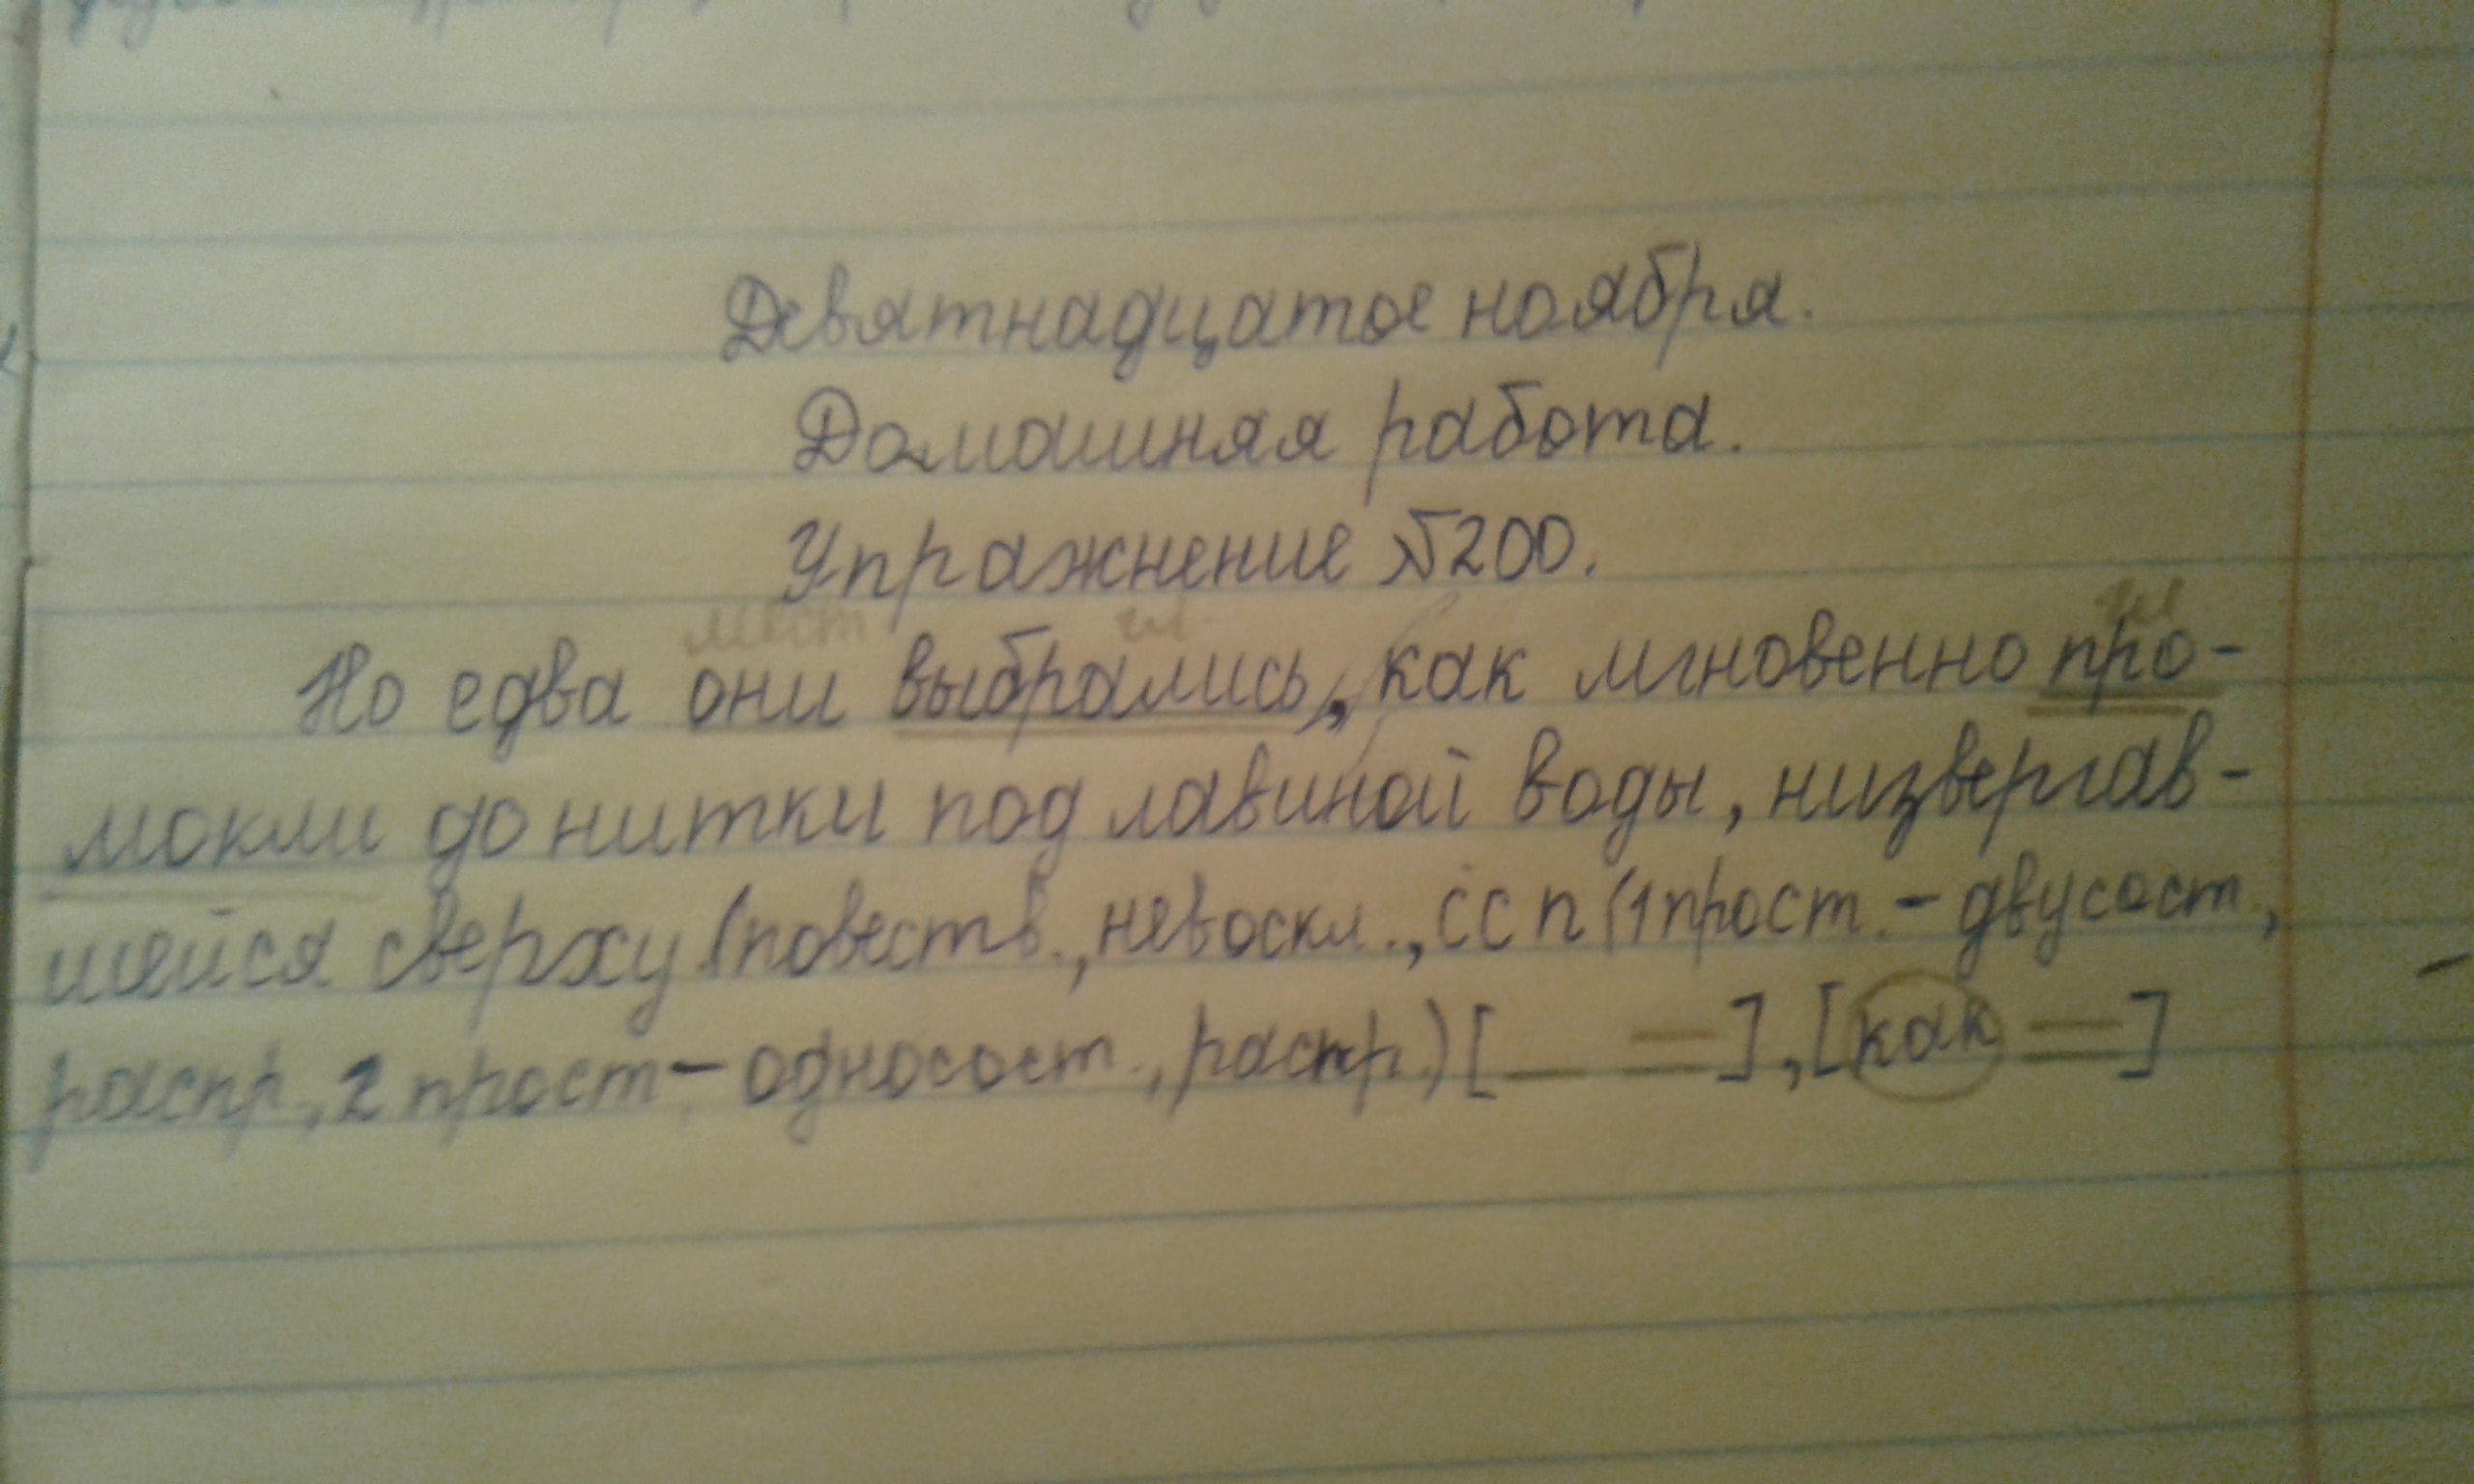 Девятнадцатое ноября.
Домашняя работа.
Упражнение №200.
мест гл. гл
Но едва они выбрались, как мгновенно про-
мокли до нитки под лавиной воды, низвергав-
шейся сверху.(повеств., невоскл., ССП (1 прост. - двусост.,
распр., 2 прост. - односост., распр.) [_ =], [как =]